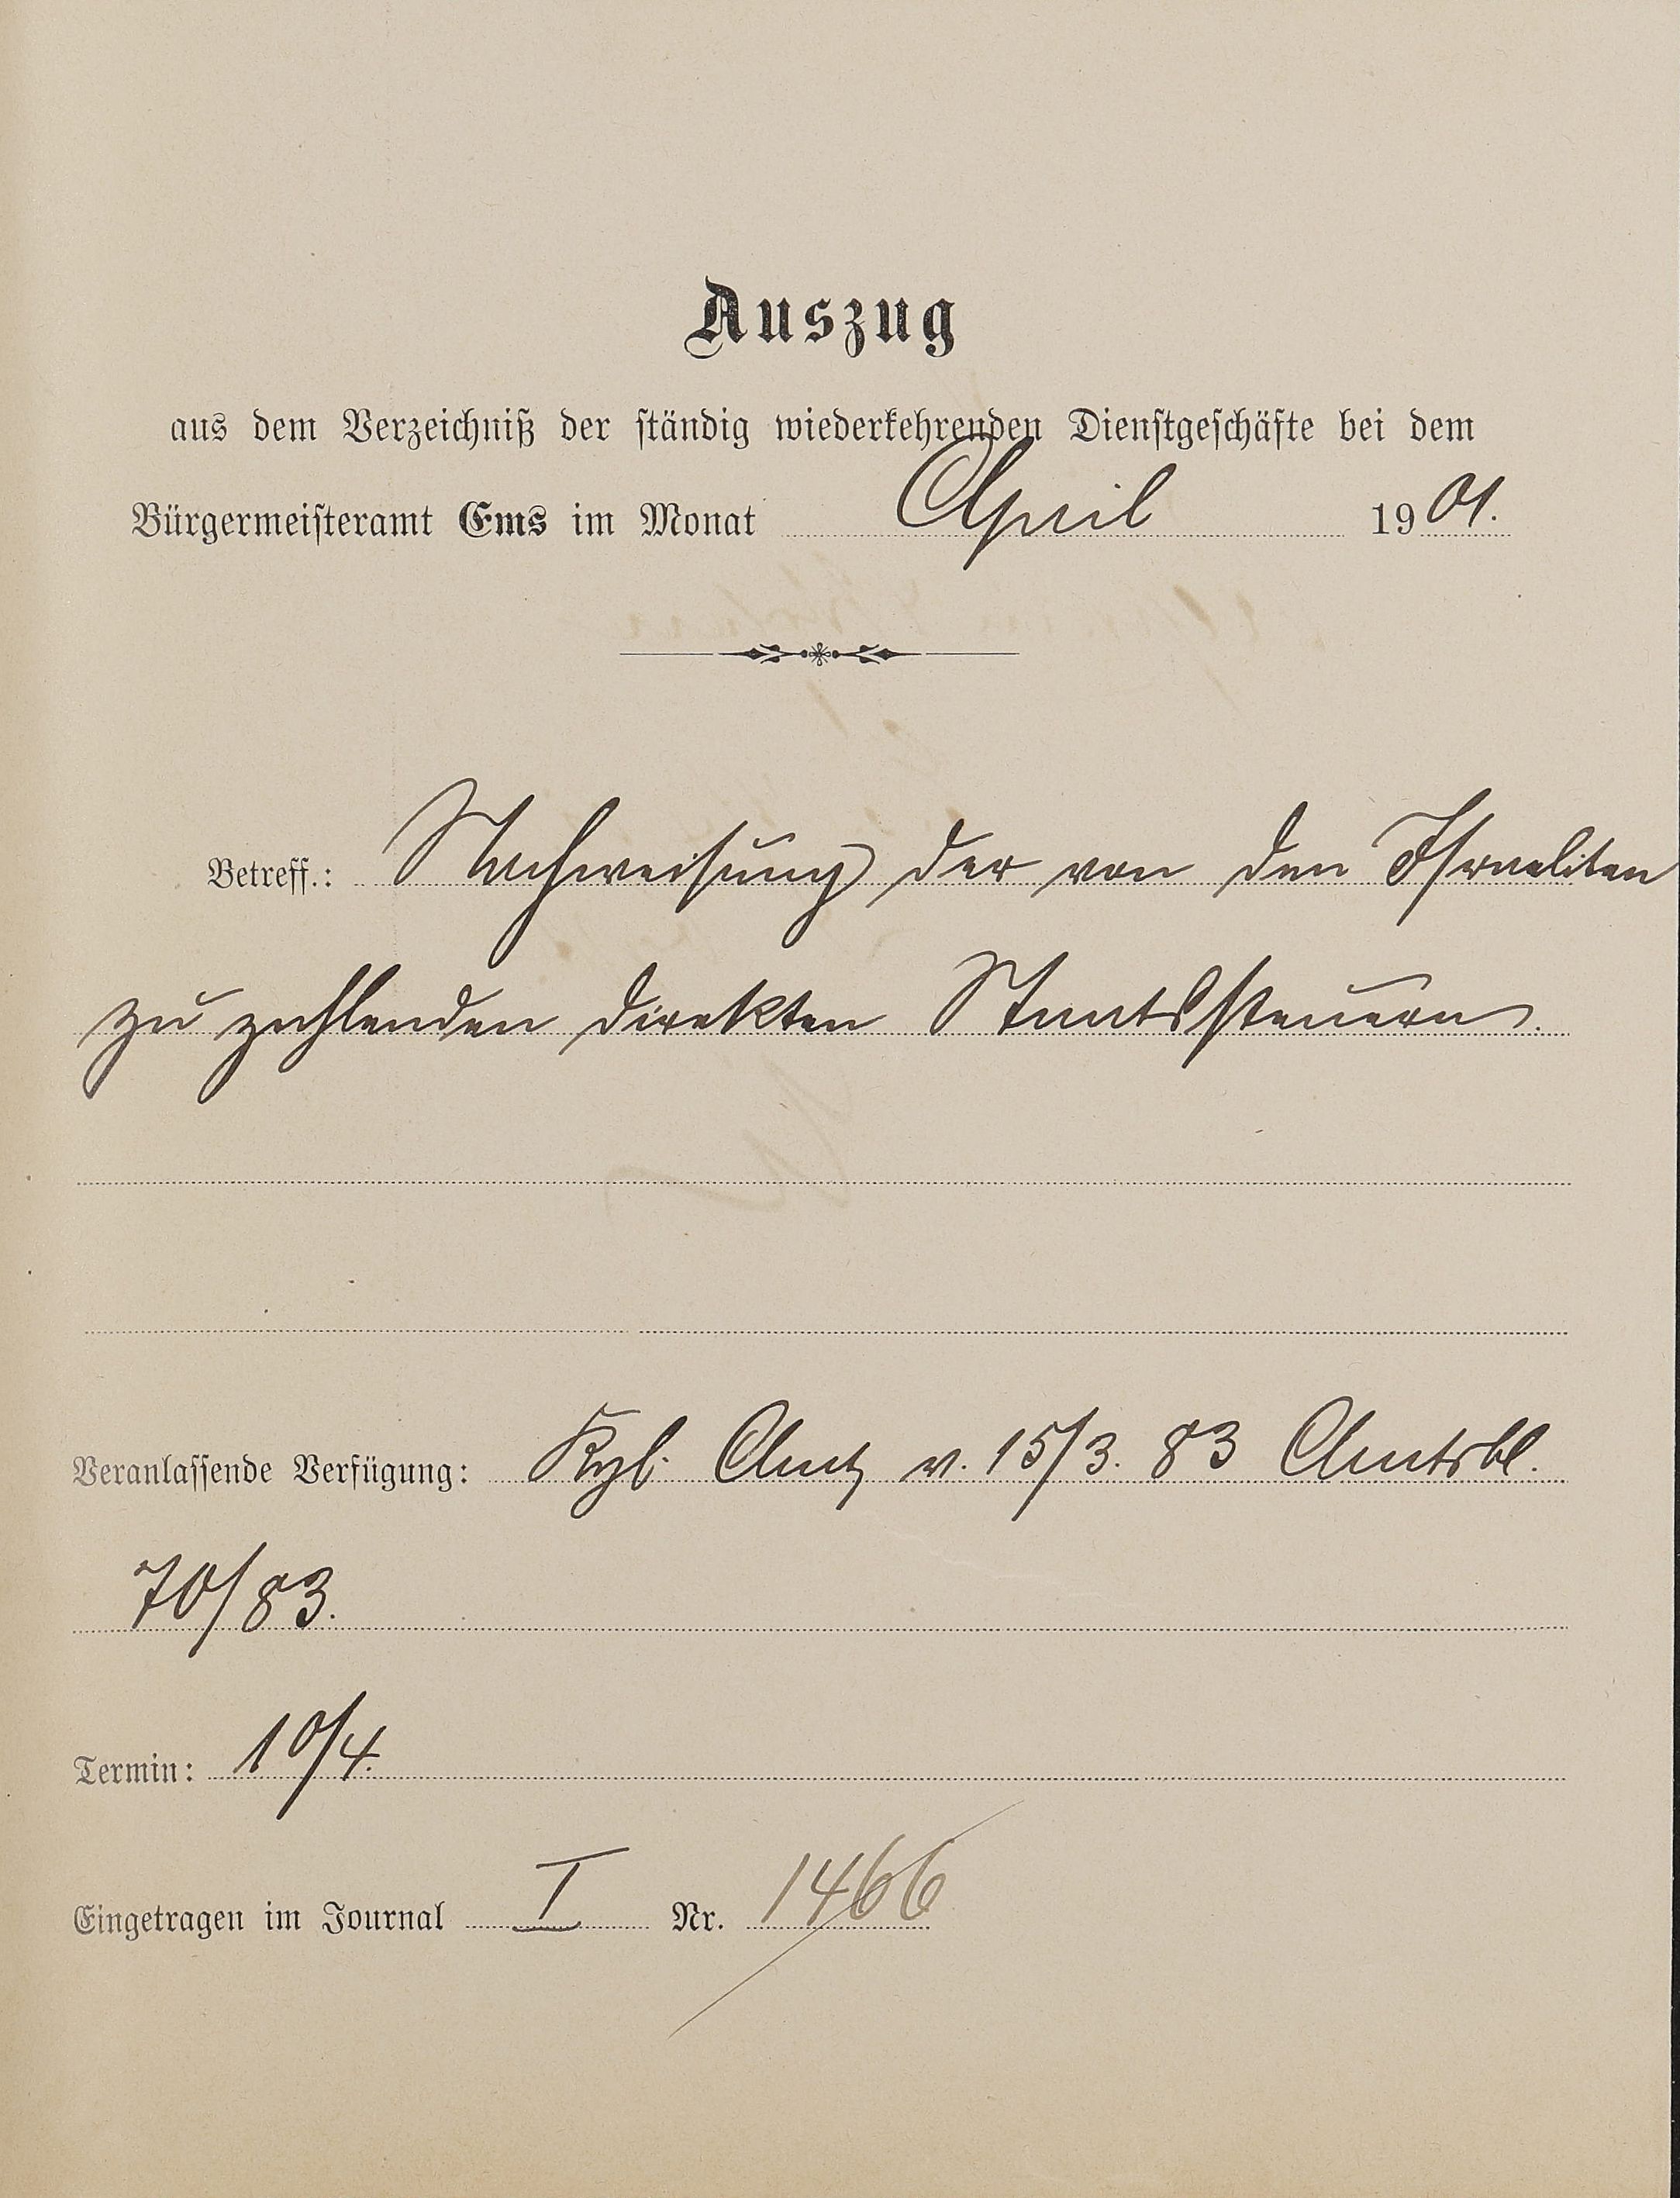 Auszug
aus dem Verzeichniß der ständig wiederkehrenden Dienstgeschäfte bei dem
Bürgermeisteramt Ems im Monat April 1901.
Betreff.: Nachweisung der von den Israeliten
zu zahlenden direkten Staatssteuern.
Veranlassende Verfügung: Kgl. Amt v. 15/3. 83 Amtsbl.
70/83.
Termin: 10/4.
Eingetragen im Journal I Nr. 1466